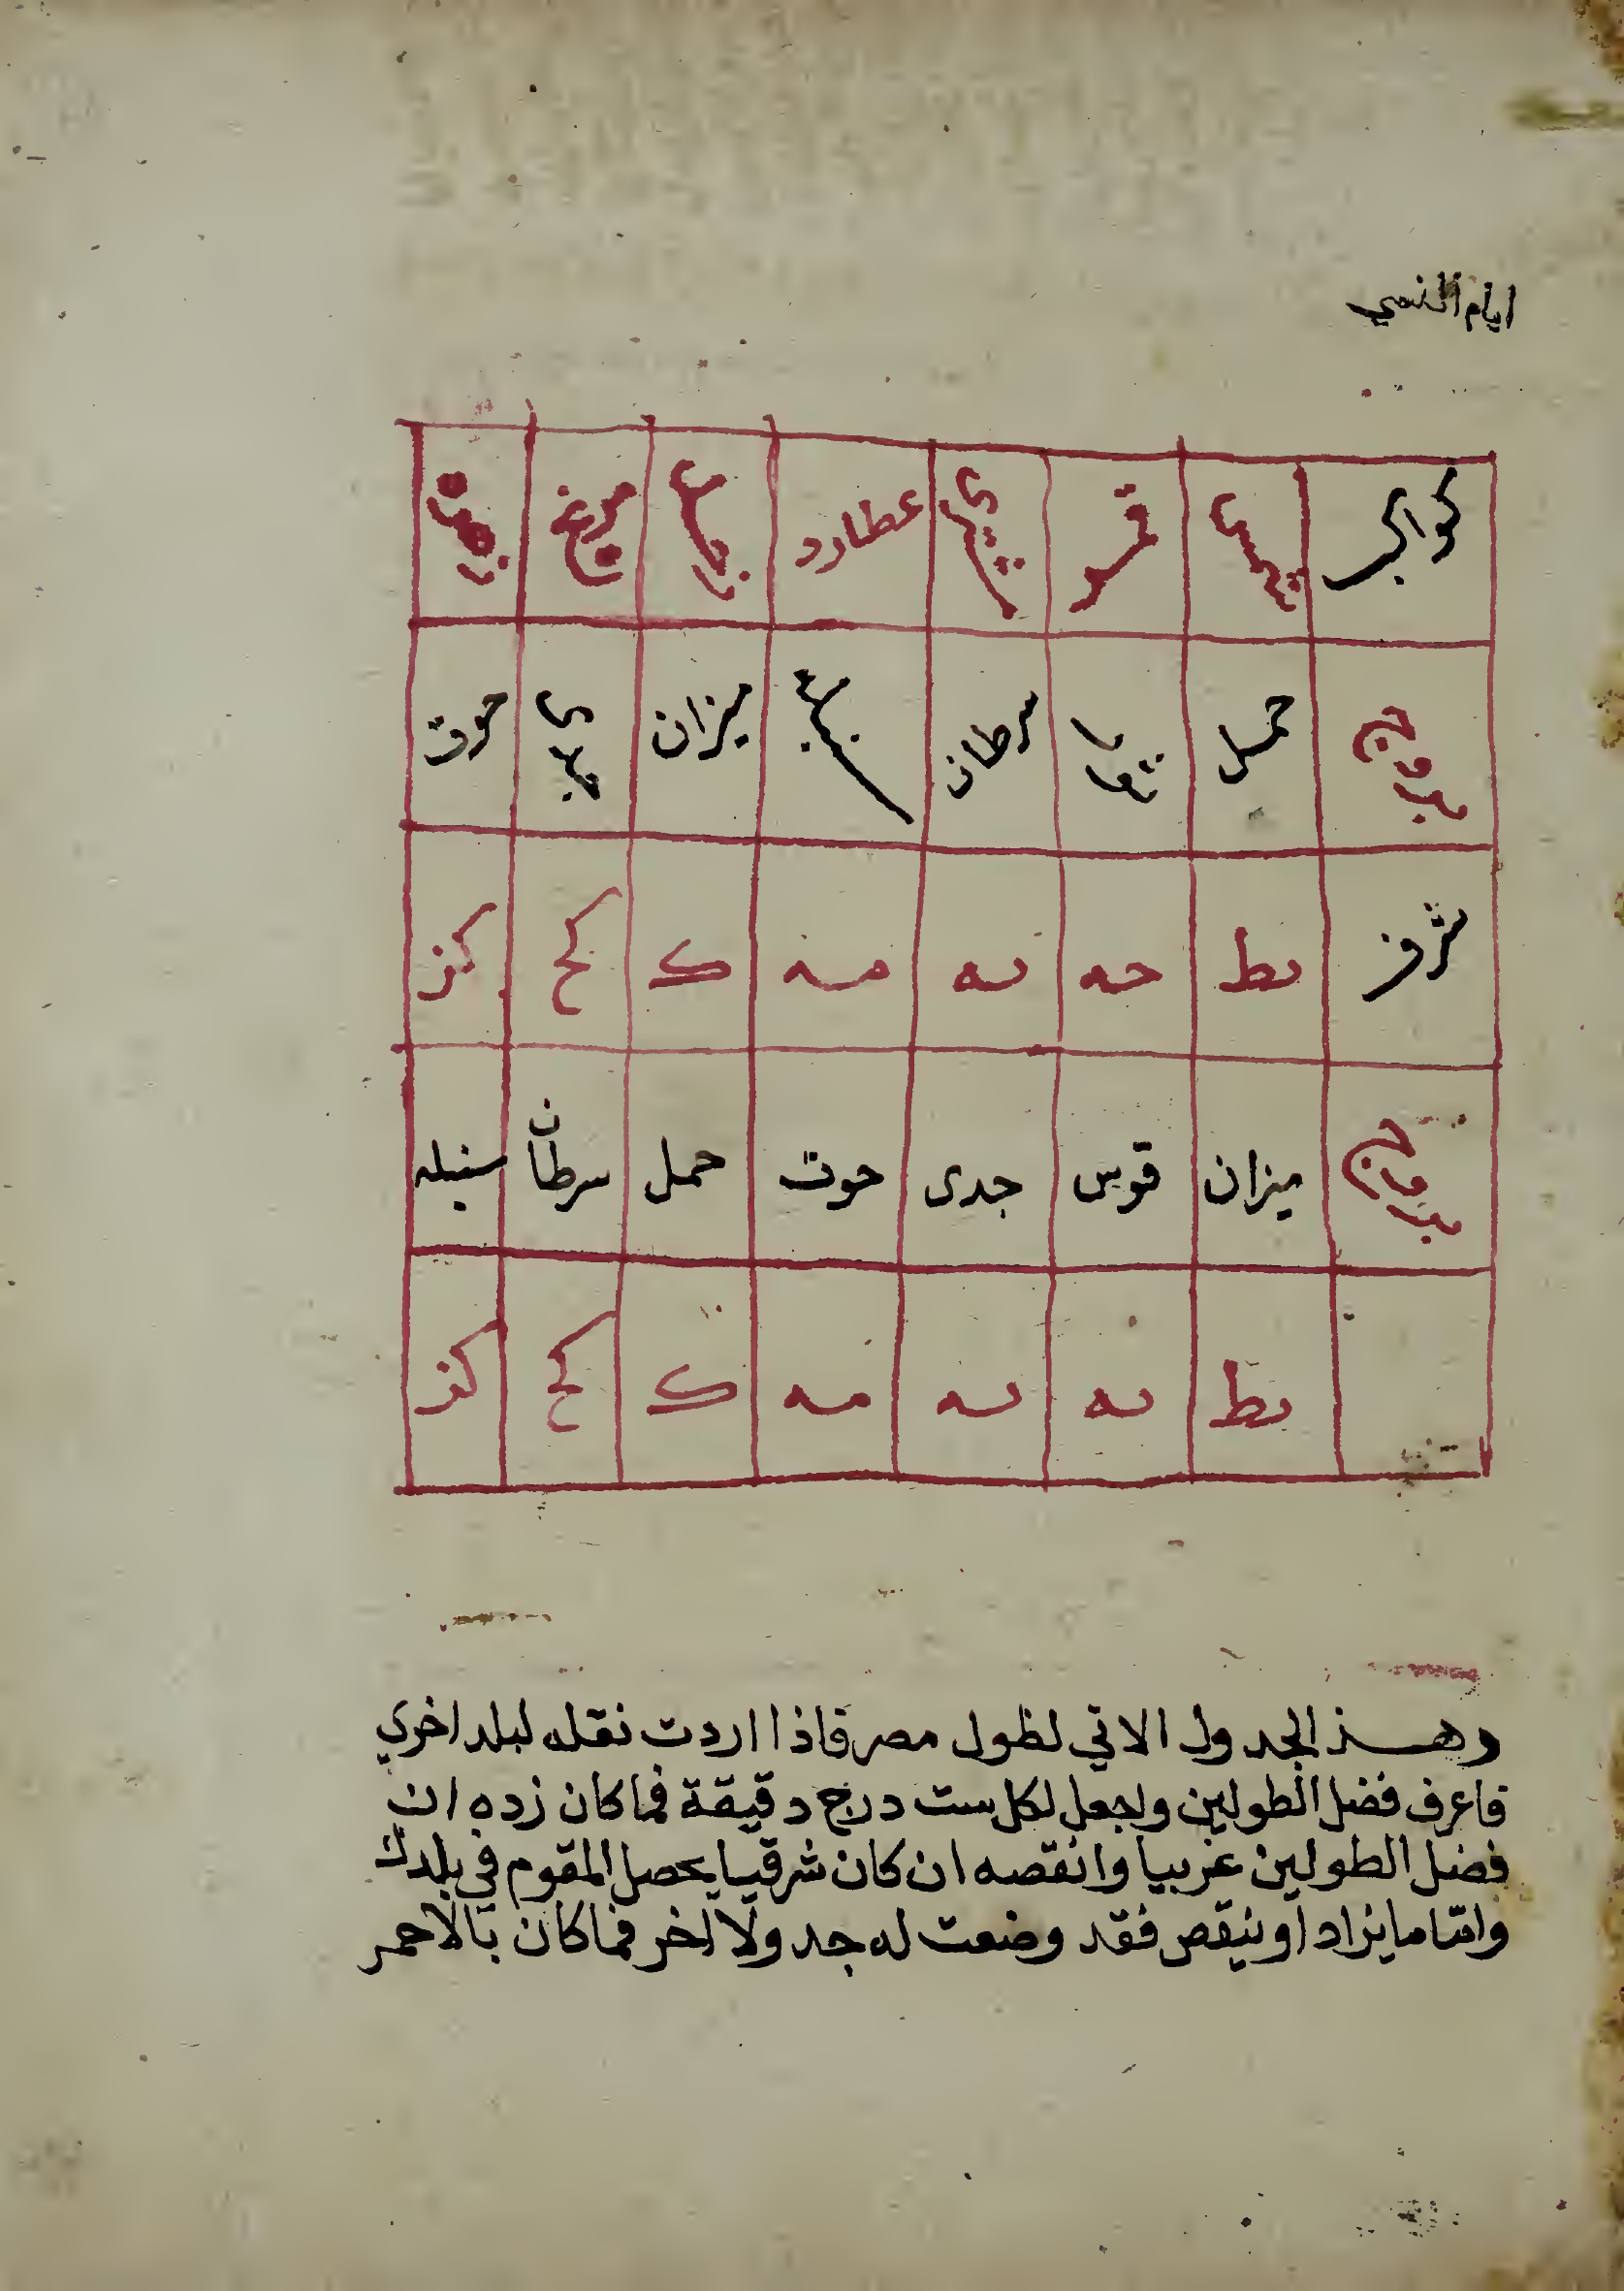 ايام النسي
كواكب شمس قمر مشتري عطارد زحل مريخ زهرة
بروج حمل ثور سرطان سنبلة ميزان جدي حوت
شرف يط حه يه مه ك كح كز
بروج ميزان قوس جدى حوت حمل سرطان سنبله
يط يه يه مه ك كح كز
وهذ الجدول الاتي لطول مصر فاذا اردت نقله لبلد اخري
فاعرف فضل الطولين واجعل لكل ست درج دقيقة فما كان زده ان
فضل الطولين غربيا وانقصه ان كان شرقيا يحصل المقوم في بلدك
واما ما يزاد او ينقص فقد وضعت له جدولا اخر فما كان بالاحمر